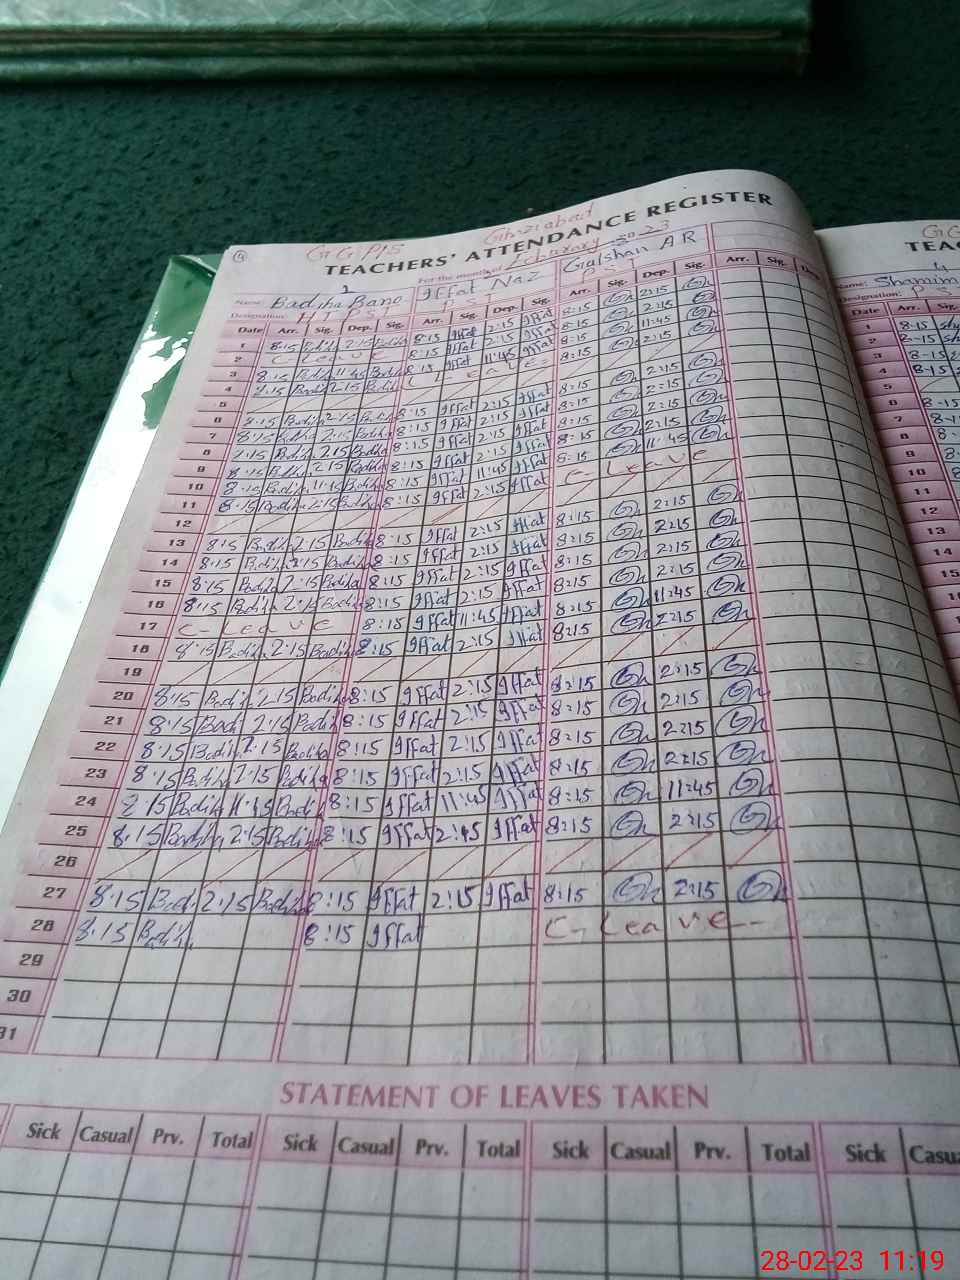 GGPS Ghaziabad
TEACHERS' ATTENDANCE REGISTER
For the month of February 2023
Name: Badiha Bano Iffat Naz Gulshan AR
Designation: HT PST PST PST
Date Arr. Sig. Dep. Sig. Arr. Sig. Dep. Sig. Arr. Sig. Dep. Sig. Arr. Sig.
1 8:15 Badiha 2:15 Badiha 8:15 Iffat 2:15 Iffat 8:15 2:15
2 C- Leave 8:15 Iffat 2:15 Iffat 8:15 2:15
3 8:15 Badiha 11:45 Badiha 8:15 Iffat 11:45 Iffat 8:15 11:45
4 8:15 Badiha 2:15 Badiha C- Leave 8:15 2:15
5
6 8:15 Badiha 2:15 Badiha 8:15 Iffat 2:15 Iffat 8:15 2:15
7 8:15 Badiha 2:15 Badiha 8:15 Iffat 2:15 Iffat 8:15 2:15
8 8:15 Badiha 2:15 Badiha 8:15 Iffat 2:15 Iffat 8:15 2:15
9 8:15 Badiha 2:15 Badiha 8:15 Iffat 2:15 Iffat 8:15 2:15
10 8:15 Badiha 11:45 Badiha 8:15 Iffat 11:45 Iffat 8:15 11:45
11 8:15 Badiha 2:15 Badiha 8:15 Iffat 2:15 Iffat C- Leave
12
13 8:15 Badiha 2:15 Badiha 8:15 Iffat 2:15 Iffat 8:15 2:15
14 8:15 Badiha 2:15 Badiha 8:15 Iffat 2:15 Iffat 8:15 2:15
15 8:15 Badiha 2:15 Badiha 8:15 Iffat 2:15 Iffat 8:15 2:15
16 8:15 Badiha 2:15 Badiha 8:15 Iffat 2:15 Iffat 8:15 2:15
17 C- Leave 8:15 Iffat 11:45 Iffat 8:15 11:45
18 8:15 Badiha 2:15 Badiha 8:15 Iffat 2:15 Iffat 8:15 2:15
19
20 8:15 Badiha 2:15 Badiha 8:15 Iffat 2:15 Iffat 8:15 2:15
21 8:15 Badi 2:15 Badiha 8:15 Iffat 2:15 Iffat 8:15 2:15
22 8:15 Badiha 2:15 Badiha 8:15 Iffat 2:15 Iffat 8:15 2:15
23 8:15 Badiha 2:15 Badiha 8:15 Iffat 2:15 Iffat 8:15 2:15
24 8:15 Badiha 11:45 Badiha 8:15 Iffat 11:45 Iffat 8:15 11:45
25 8:15 Badiha 2:15 Badiha 8:15 Iffat 2:15 Iffat 8:15 2:15
26
27 8:15 Badi 2:15 Badiha 8:15 Iffat 2:15 Iffat 8:15 2:15
28 8:15 Badiha 8:15 Iffat C- Leave--
29
30
31
STATEMENT OF LEAVES TAKEN
Sick Casual Prv. Total Sick Casual Prv. Total Sick Casual Prv. Total Sick
TEAC
Name: Shamim
Designation:
Date Arr.
1 8-15
2 8-15
3 8-15
4 8-15
5
6 8-15
7
8
9
10
11
12
13
14
15
28-02-23 11:19